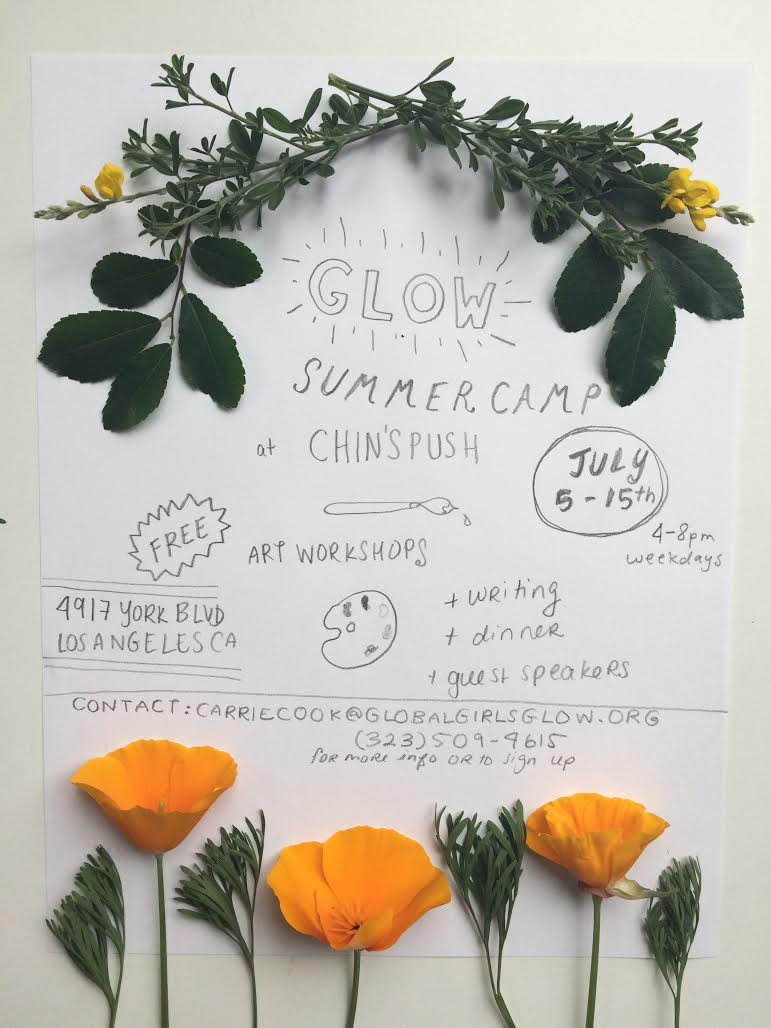 GLOW
SUMMER CAMP
at CHIN'S PUSH
JULY
5-15th
4-8pm
weekdays
FREE
ART WORKSHOPS
4917 YORK BLVD
LOS ANGELES CA
+ writing
+ dinner
+ guest speakers
CONTACT: CARRIECOOK@GLOBALGIRLSGLOW.ORG
(323)509-4615
for more info OR to sign up